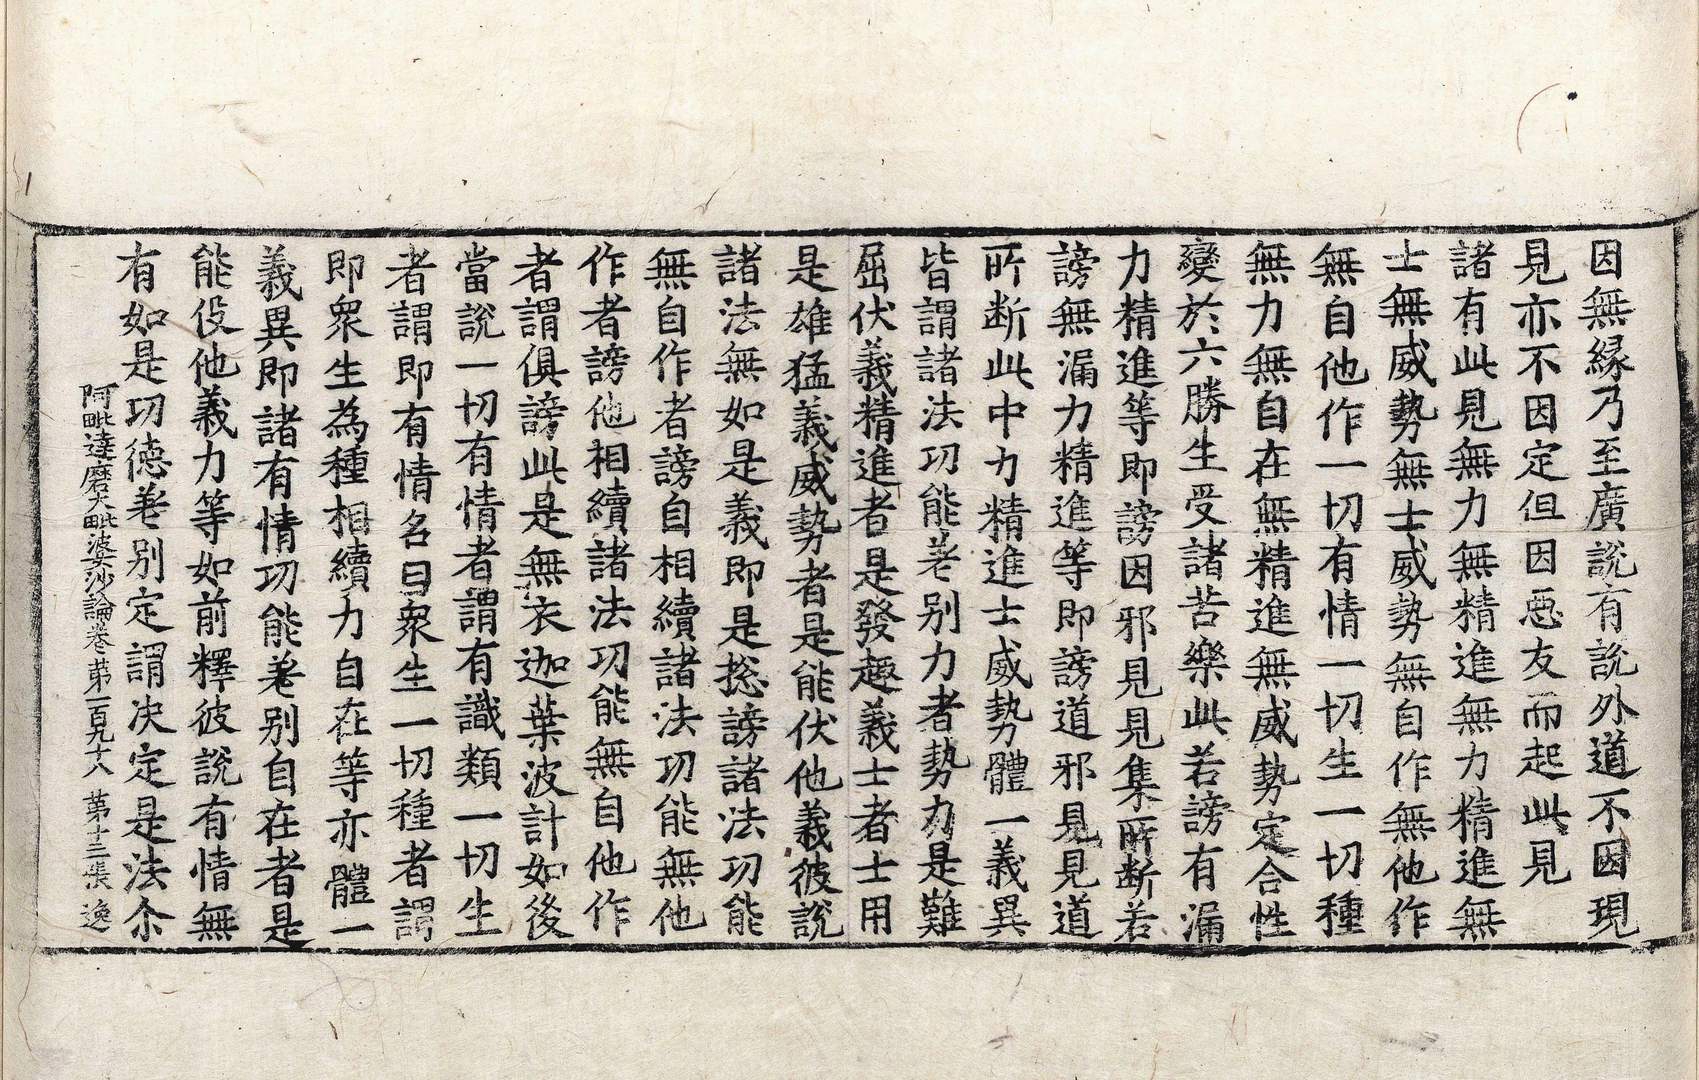 因無緣乃至廣說有說外道不因現
見亦不因定但因惡友而起此見
諸有此見無力無精進無力精進無
士無威勢無士威勢無自作無他作
無自他作一切有情一切生一切種
無力無自在無精進無威勢定合性
變於六勝生受諸苦樂此若謗有漏
力精進等即謗因邪見見集所断若
謗無漏力精進等即謗道邪見見道
所断此中力精進士威勢體一義異
皆謂諸法功能差别力者勢力是難
屈伏義精進者是發趣義士者士用
是雄猛義威勢者是能伏他義彼說
諸法無如是義即是揔謗諸法功能
無自作者謗自相續諸法功能無他
作者謗他相續諸法功能無自他作
者謂俱謗此是無衣迦葉波計如後
當說一切有情者謂有識類一切生
者謂即有情名曰衆生一切種者謂
即衆生為種相續力自在等亦體一
義異即諸有情功能差别自在者是
能伇他義力等如前釋彼說有情無
有如是功德差别定謂决定是法尒
阿毗達磨大毗婆沙論卷苐一百九十八 苐十三張 逸